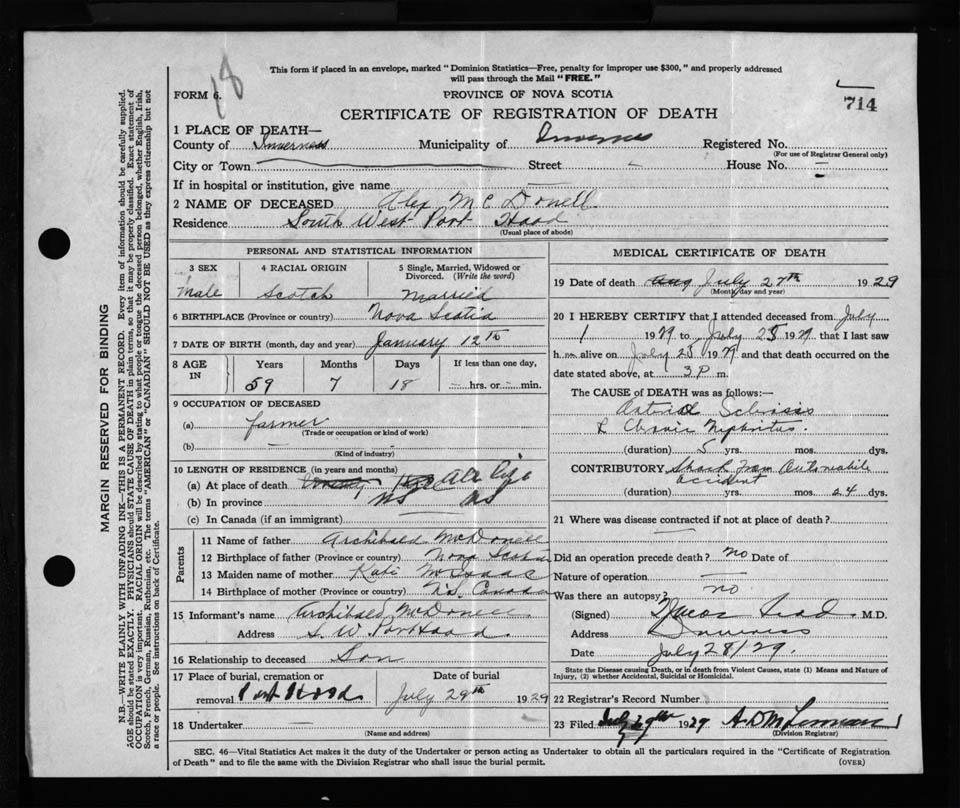 18
This form if placed in an envelope, marked "Dominion Statistics—Free, penalty for improper use $300," and properly addressed
will pass through the Mail "FREE."
FORM 6.
PROVINCE OF NOVA SCOTIA
CERTIFICATE OF REGISTRATION OF DEATH
714
1 PLACE OF DEATH—
County of Inverness Municipality of Inverness Registered No.
(For use of Registrar General only)
City or Town Street - House No. -
If in hospital or institution, give name
2 NAME OF DECEASED Alex McDonell
Residence South West Port Hood
(Usual place of abode)
PERSONAL AND STATISTICAL INFORMATION
3 SEX 4 RACIAL ORIGIN 5 Single, Married, Widowed or Divorced. (Write the word)
Male Scotch Married
6 BIRTHPLACE (Province or country) Nova Scotia
7 DATE OF BIRTH (month, day and year) January 12th
8 AGE IN Years Months Days If less than one day,
59 7 18 hrs. or min.
9 OCCUPATION OF DECEASED
(a) farmer
(Trade or occupation or kind of work)
(b) —
(Kind of industry)
10 LENGTH OF RESIDENCE (in years and months)
(a) At place of death all life
(b) In province NS NS
(c) In Canada (if an immigrant)
Parents
11 Name of father Archibald McDonell
12 Birthplace of father (Province or country) Nova Scotia
13 Maiden name of mother Kate McIsaac
14 Birthplace of mother (Province or country) N.S. Canada
15 Informant's name Archibald McDonell
Address S. W. Port Hood
16 Relationship to deceased Son
17 Place of burial, cremation or removal Port Hood Date of burial July 29th 1929
18 Undertaker —
(Name and address)
MEDICAL CERTIFICATE OF DEATH
19 Date of death Aug July 27th 1929
(Month, day and year)
20 I HEREBY CERTIFY that I attended deceased from July
1 1929 to July 25 1929 that I last saw
h im alive on July 25 1929 and that death occurred on the
date stated above, at 3 P m.
The CAUSE of DEATH was as follows:
Arterial Sclerosis
& Chronic Nephritus.
(duration) 5 yrs. mos. dys.
CONTRIBUTORY Shock from Automobile
accident
(duration) yrs. mos. 24 dys.
21 Where was disease contracted if not at place of death?
—
Did an operation precede death? no Date of
Nature of operation —
Was there an autopsy? no
(Signed) M.D.
Address Inverness
Date July 28/29.
State the Disease causing Death, or in death from Violent Causes, state (1) Means and Nature of
Injury, (2) whether Accidental, Suicidal or Homicidal.
22 Registrar's Record Number
23 Filed July 29th 1929
(Division Registrar)
SEC. 46—Vital Statistics Act makes it the duty of the Undertaker or person acting as Undertaker to obtain all the particulars required in the "Certificate of Registration
of Death" and to file the same with the Division Registrar who shall issue the burial permit.
(OVER)
MARGIN RESERVED FOR BINDING
N.B.—WRITE PLAINLY WITH UNFADING INK—THIS IS A PERMANENT RECORD. Every item of information should be carefully supplied.
AGE should be stated EXACTLY. PHYSICIANS should STATE CAUSE OF DEATH in plain terms, so that it may be properly classified. Exact statement of
OCCUPATION is very important. RACIAL ORIGIN will be described by stating to what people or tongue the deceased person belonged, whether English, Irish,
Scotch, French, German, Russian, Ruthenian, etc. The terms "AMERICAN" or "CANADIAN" SHOULD NOT BE USED as they express citizenship but not
a race or people. See instructions on back of Certificate.